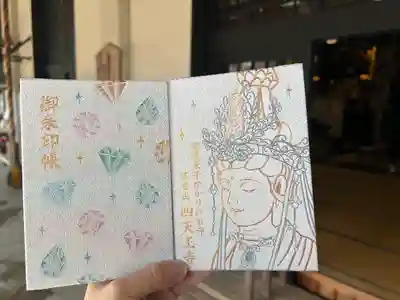 御朱印帳
聖徳太子ゆかりのお寺
四天王寺